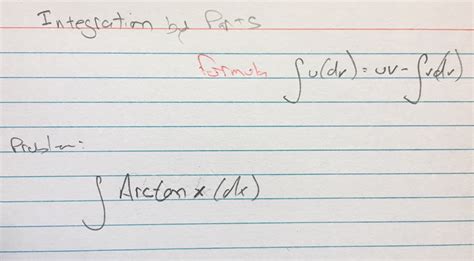 Integration by Parts
formula ∫u(dv) = uv - ∫v(dv)
Problem:
∫Arctan x (dx)